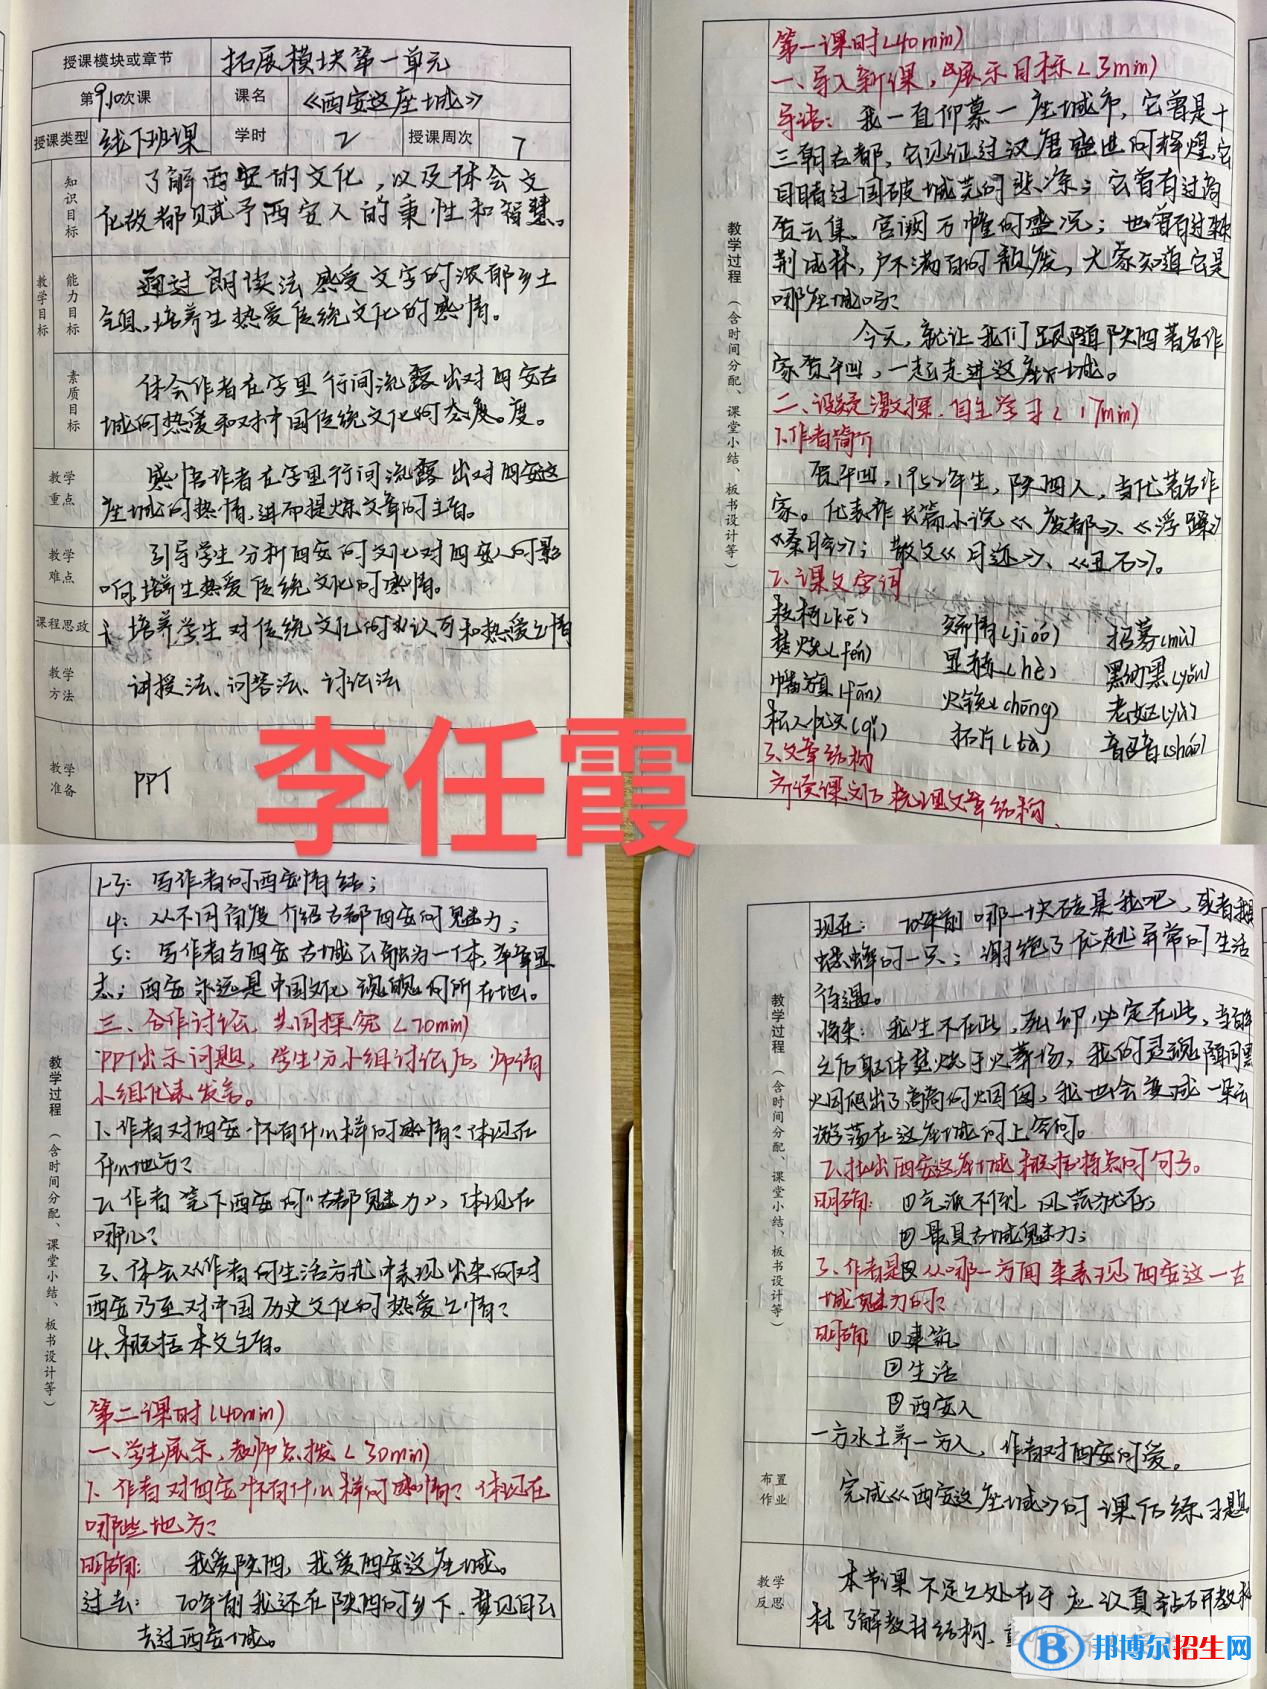 授课模块或章节 拓展模块第一单元
第9,10次课 课名 《西安这座城》
授课类型 线下班课 学时 2 授课周次 7
教学目标
知识目标
了解西安的文化，以及体会文
化故都赋予西安人的秉性和智慧。
能力目标
通过朗读法感受文字的浓郁乡土
气息、培养生热爱传统文化的感情。
素质目标
体会作者在字里行间流露出对西安古
城的热爱和对中国传统文化的态度。度。
教学重点
感悟作者在字里行间流露出对西安这
座城的热情，进而提炼文章的主旨。
教学难点
引导学生分析西安的文化对西安人的影
响，培养生热爱传统文化的感情。
课程思政
培养学生对传统文化的认可和热爱之情
教学方法
讲授法、问答法、讨论法
教学准备
PPT
李任霞
教学过程（含时间分配、课堂小结、板书设计等）
第一课时(40min)
一、导入新课，展示目标(3min)
导语：我一直仰慕一座城市，它曾是十
三朝古都，它见证过汉唐盛世的辉煌，它
目睹过国破城荒的悲凉；它曾有过商
贾云集、宫阙万幢的盛况；也曾有过荆棘
荆成林，户不满百的颓废，大家知道它是
哪座城吗？
今天，就让我们跟随陕西著名作
家贾平凹，一起走进这座城。
二、设疑激探，自主学习(17min)
1.作者简介
贾平凹，1952年生，陕西人，当代著名作
家。代表作长篇小说《废都》、《浮躁》
《秦腔》；散文《月迹》、《丑石》。
2、课文字词
枝柯(kē) 矫情(jiáo) 招募(mù)
焚烧(fén) 显赫(hè) 黑黝黝(yǒu)
幡旗(fān) 火铳(chòng) 老妪(yù)
杞人忧天(qǐ) 拓片(tà) 韶音(sháo)
3、文章结构
齐读课文后梳理文章结构。
教学过程（含时间分配、课堂小结、板书设计等）
1-3：写作者的西安情结；
4：从不同角度介绍古都西安的魅力；
5：写作者与西安古城已融为一体，卒章显
志；西安永远是中国文化魂魄的所在地。
三、合作讨论，共同探究(20min)
PPT出示问题，学生分小组讨论后，师请
小组代表发言。
1、作者对西安怀有什么样的感情？体现在
什么地方？
2、作者笔下西安的“古都魅力”，体现在
哪儿？
3、体会从作者的生活方式中表现出来的对
西安乃至对中国历史文化的热爱之情？
4、概括本文主旨。
第二课时(40min)
一、学生展示，教师点拨(30min)
1、作者对西安怀有什么样的感情？体现在
哪些地方？
明确：我爱陕西，我爱西安这座城。
过去：20年前我还在陕西的乡下，梦见自己
去过西安城。
教学过程（含时间分配、课堂小结、板书设计等）
现在：20年前哪一块砖是我吧，或者我是
蟋蟀的一只；谢绝了优越异常的生活
待遇。
将来：我生不在此，死却必定在此，当百年
之后躯体焚烧于火葬场，我的灵魂随同黑
烟爬出了高高的烟囱，我也会变成一朵云
游荡在这座城的上空的。
2、找出西安这座城概括特点的句子。
明确：①气派不倒，风范犹存；
②最具古城魅力；
3、作者是从哪一方面来表现西安这一古
城魅力的？
明确：①建筑
②生活
③西安人
一方水土养一方人，作者对西安的爱。
布置作业
完成《西安这座城》的课后练习题
教学反思
本节课不足之处在于应认真钻研教
材了解教材结构、
邦博尔招生网